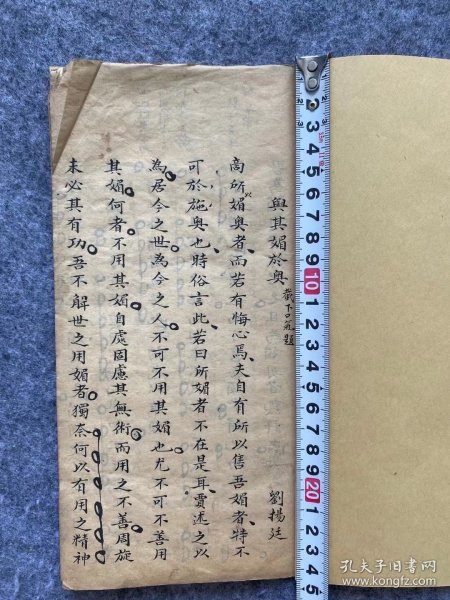 與其媚於奧 截下口氣題 劉揚廷
商所以媚奧者而若有悔心焉夫自有所以售吾媚者特不
可於施奧也時俗言此若曰所媚者不在是耳賈述之以
為居今之世為今之人不可不用其媚也尤不可不善用
其媚何者不用其媚自處固慮其無術而用之不善周旋
未必其有功吾不解世之用媚者獨奈何以有用之精神
2 3 4 5 6 7 8 9 10 1 2 3 4 5 6 7 8 9 20 1 2 3 4 5
孔夫子旧书网